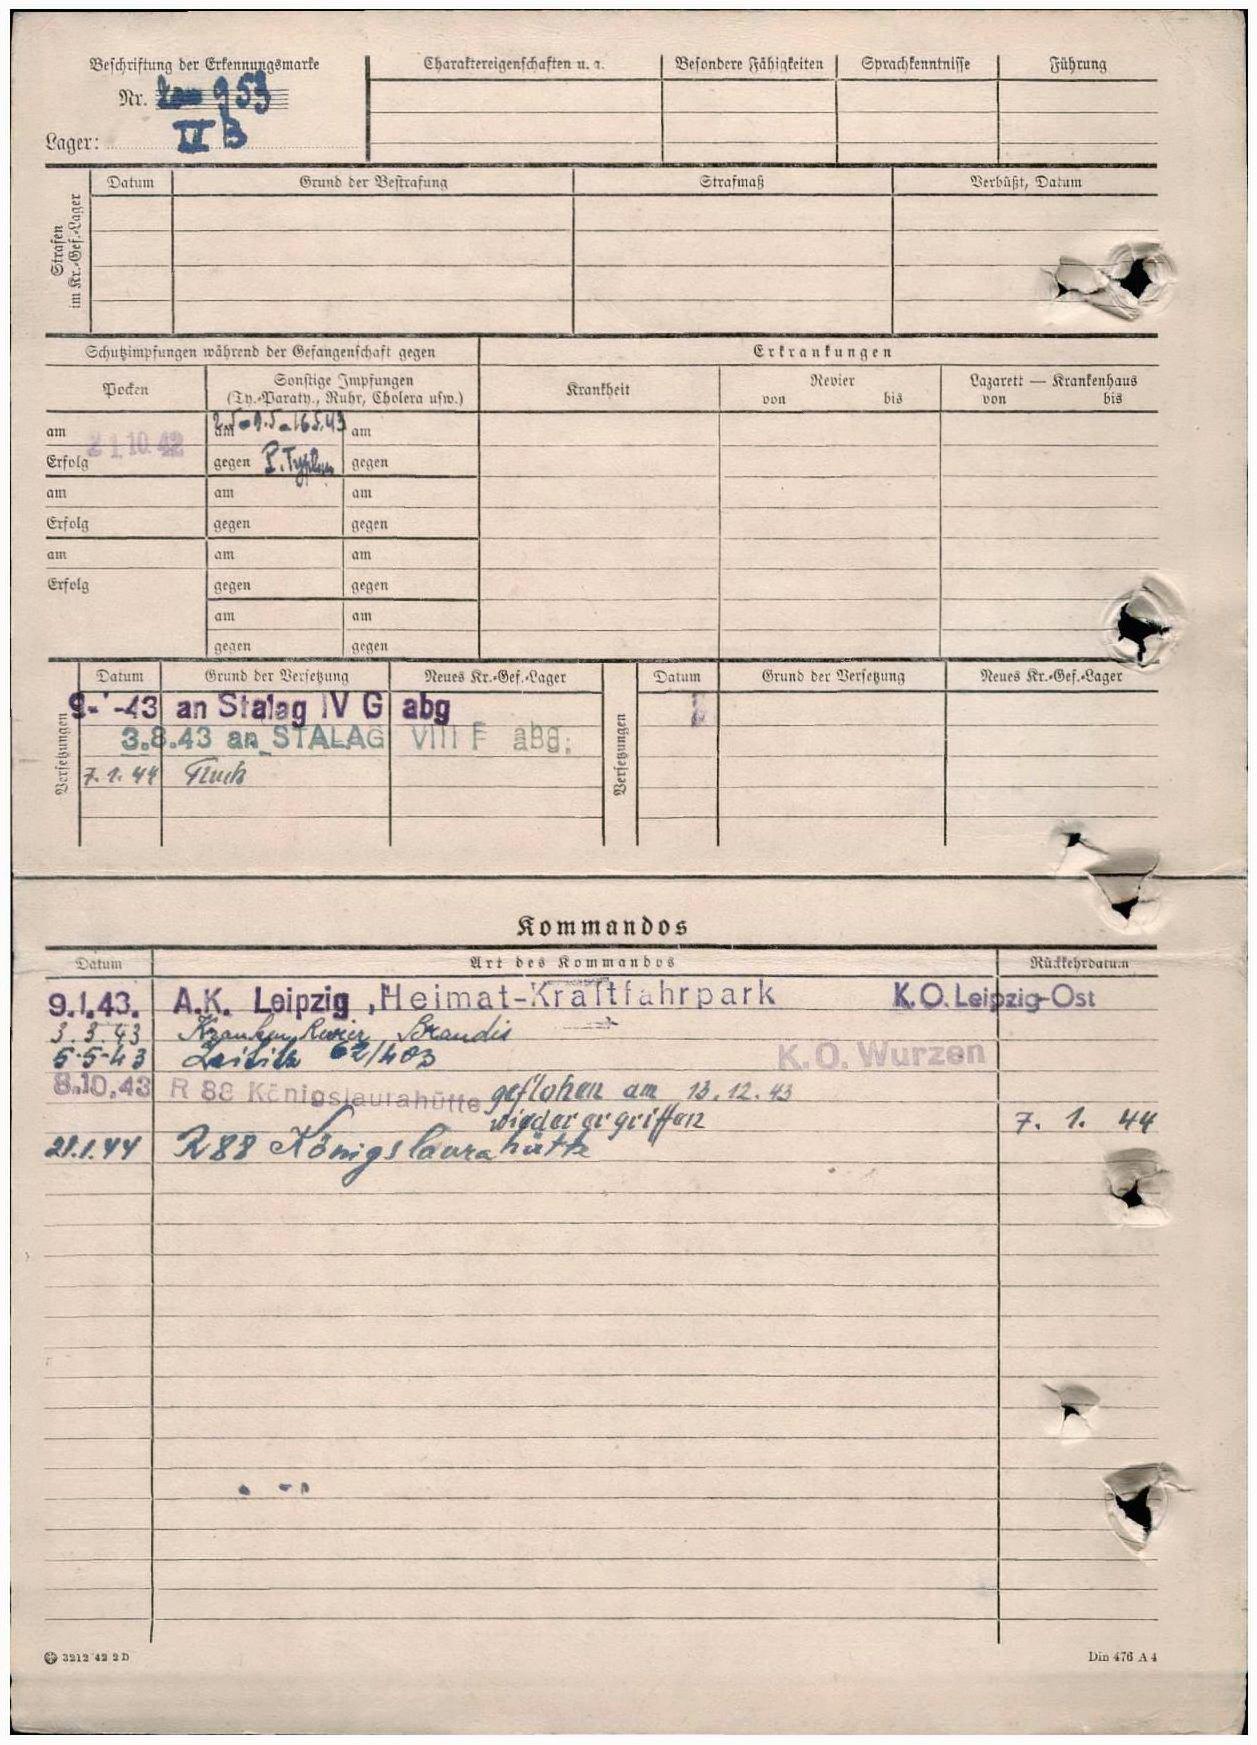 Beschriftung der Erkennungsmarke
Nr. 953
Lager: IV B
Charaktereigenschaften u. a.
Besondere Fähigkeiten
Sprachkenntnisse
Führung
Strafen im Kr.-Gef.-Lager
Datum
Grund der Bestrafung
Strafmaß
Verbüßt, Datum
Schutzimpfungen während der Gefangenschaft gegen
Erkrankungen
Pocken
Sonstige Impfungen
(Ty.-Paraty., Ruhr, Cholera usw.)
Krankheit
Revier
von bis
Lazarett — Krankenhaus
von bis
am 21.10.42
am 2.5-9.5-16.5.43
am
Erfolg
gegen P. Typhus
gegen
am am am
Erfolg gegen gegen
am am am
Erfolg gegen gegen
am am
gegen gegen
Versetzungen
Datum Grund der Versetzung Neues Kr.-Gef.-Lager
9- -43 an Stalag IV G abg
3.8.43 an STALAG VIII F abg.
7.1.44 Fluch
Versetzungen
Datum Grund der Versetzung Neues Kr.-Gef.-Lager
Kommandos
Datum Art des Kommandos Rückkehrdatum
9.1.43. A.K. Leipzig, Heimat-Kraftfahrpark K.O. Leipzig-Ost
3.3.43 Kranken Revier Brandis
5-5-43 62/403 K.O. Wurzen
8.10.43 R 88 Königslaurahütte geflohen am 13.12.43
wiederergriffen 7. 1. 44
21.1.44 R 88 Königslaurahütte
3212 42 2 D
Din 476 A 4